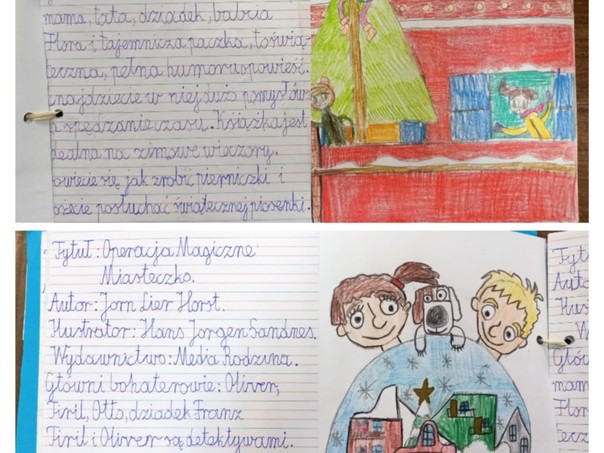 mama, tata, dziadek, babcia
Flora i tajemnicza paczka, to świą-
teczna, pełna humoru opowieść.
znajdziecie w niej dużo pomysłów
spędzanie czasu. Książka jest
dealna na zimowe wieczory.
owiecie się, jak zrobić pierniczki i
ożecie posłuchać świątecznej piosenki.
Tytuł: Operacja Magiczne
Miasteczko.
Autor: Jorn Lier Horst.
Ilustrator: Hans Jorgen Sandnes.
Wydawnictwo: Media Rodzina.
Główni bohaterowie: Oliver,
Tiril, Otto, dziadek Franz
Tiril i Oliver są detektywami.
Tyt
Auto
Ilus
W
Głów
mam
Flor
tecz